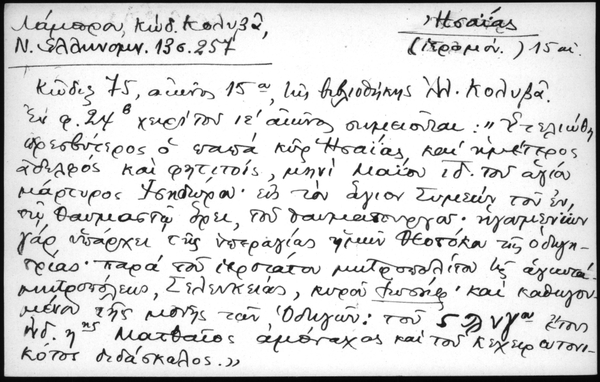 Λάμπρου, Κώδ. Κολυβᾶ, Ἡσαΐας
Ν. Ἑλληνομν. 13σ. 257 (ἱερομόν.) 15 αἰ.
Κώδιξ 75, αἰῶνος 15ου, τῆς βιβλιοθήκης Ἀλ. Κολυβᾶ.
Ἐν φ. 24β χειρὶ τοῦ ιε' αἰῶνος σημειοῦται: „Ἐτελιώθη
πρεσβύτερος ὁ παπᾶ κῦρ Ἡσαΐας καὶ ἡμέτερος
ἀδελφός καὶ φητιτοίς, μηνὶ Μαΐου ιδ. τοῦ ἁγίου
μάρτυρος Ἰσηδώρου· εἰς τὸν ἅγιον Συμεών τοῦ ἐν
τῷ θαυμαστῷ ὄρει, τοῦ θαυματουργοῦ·
γὰρ ὑπάρχει τῆς ὑπεραγίας ἡμῶν Θεοτόκου τῆς ὁδηγη-
τρίας· παρὰ τοῦ ἱεροτάτου μητροπολίτου τῆς ἁγιωτά-
μητροπόλεως, Σελευκείας, κυροῦ Ἰωσήφ· καὶ καθηγου-
μένου τῆς μονῆς τῶν Ὁδηγῶν: τοῦ ἔτους
Ἰνδ. ης Ματθαῖος ἁμόναχος καὶ τοῦ κεχειροτονι-
κότος διδάσκαλος.»